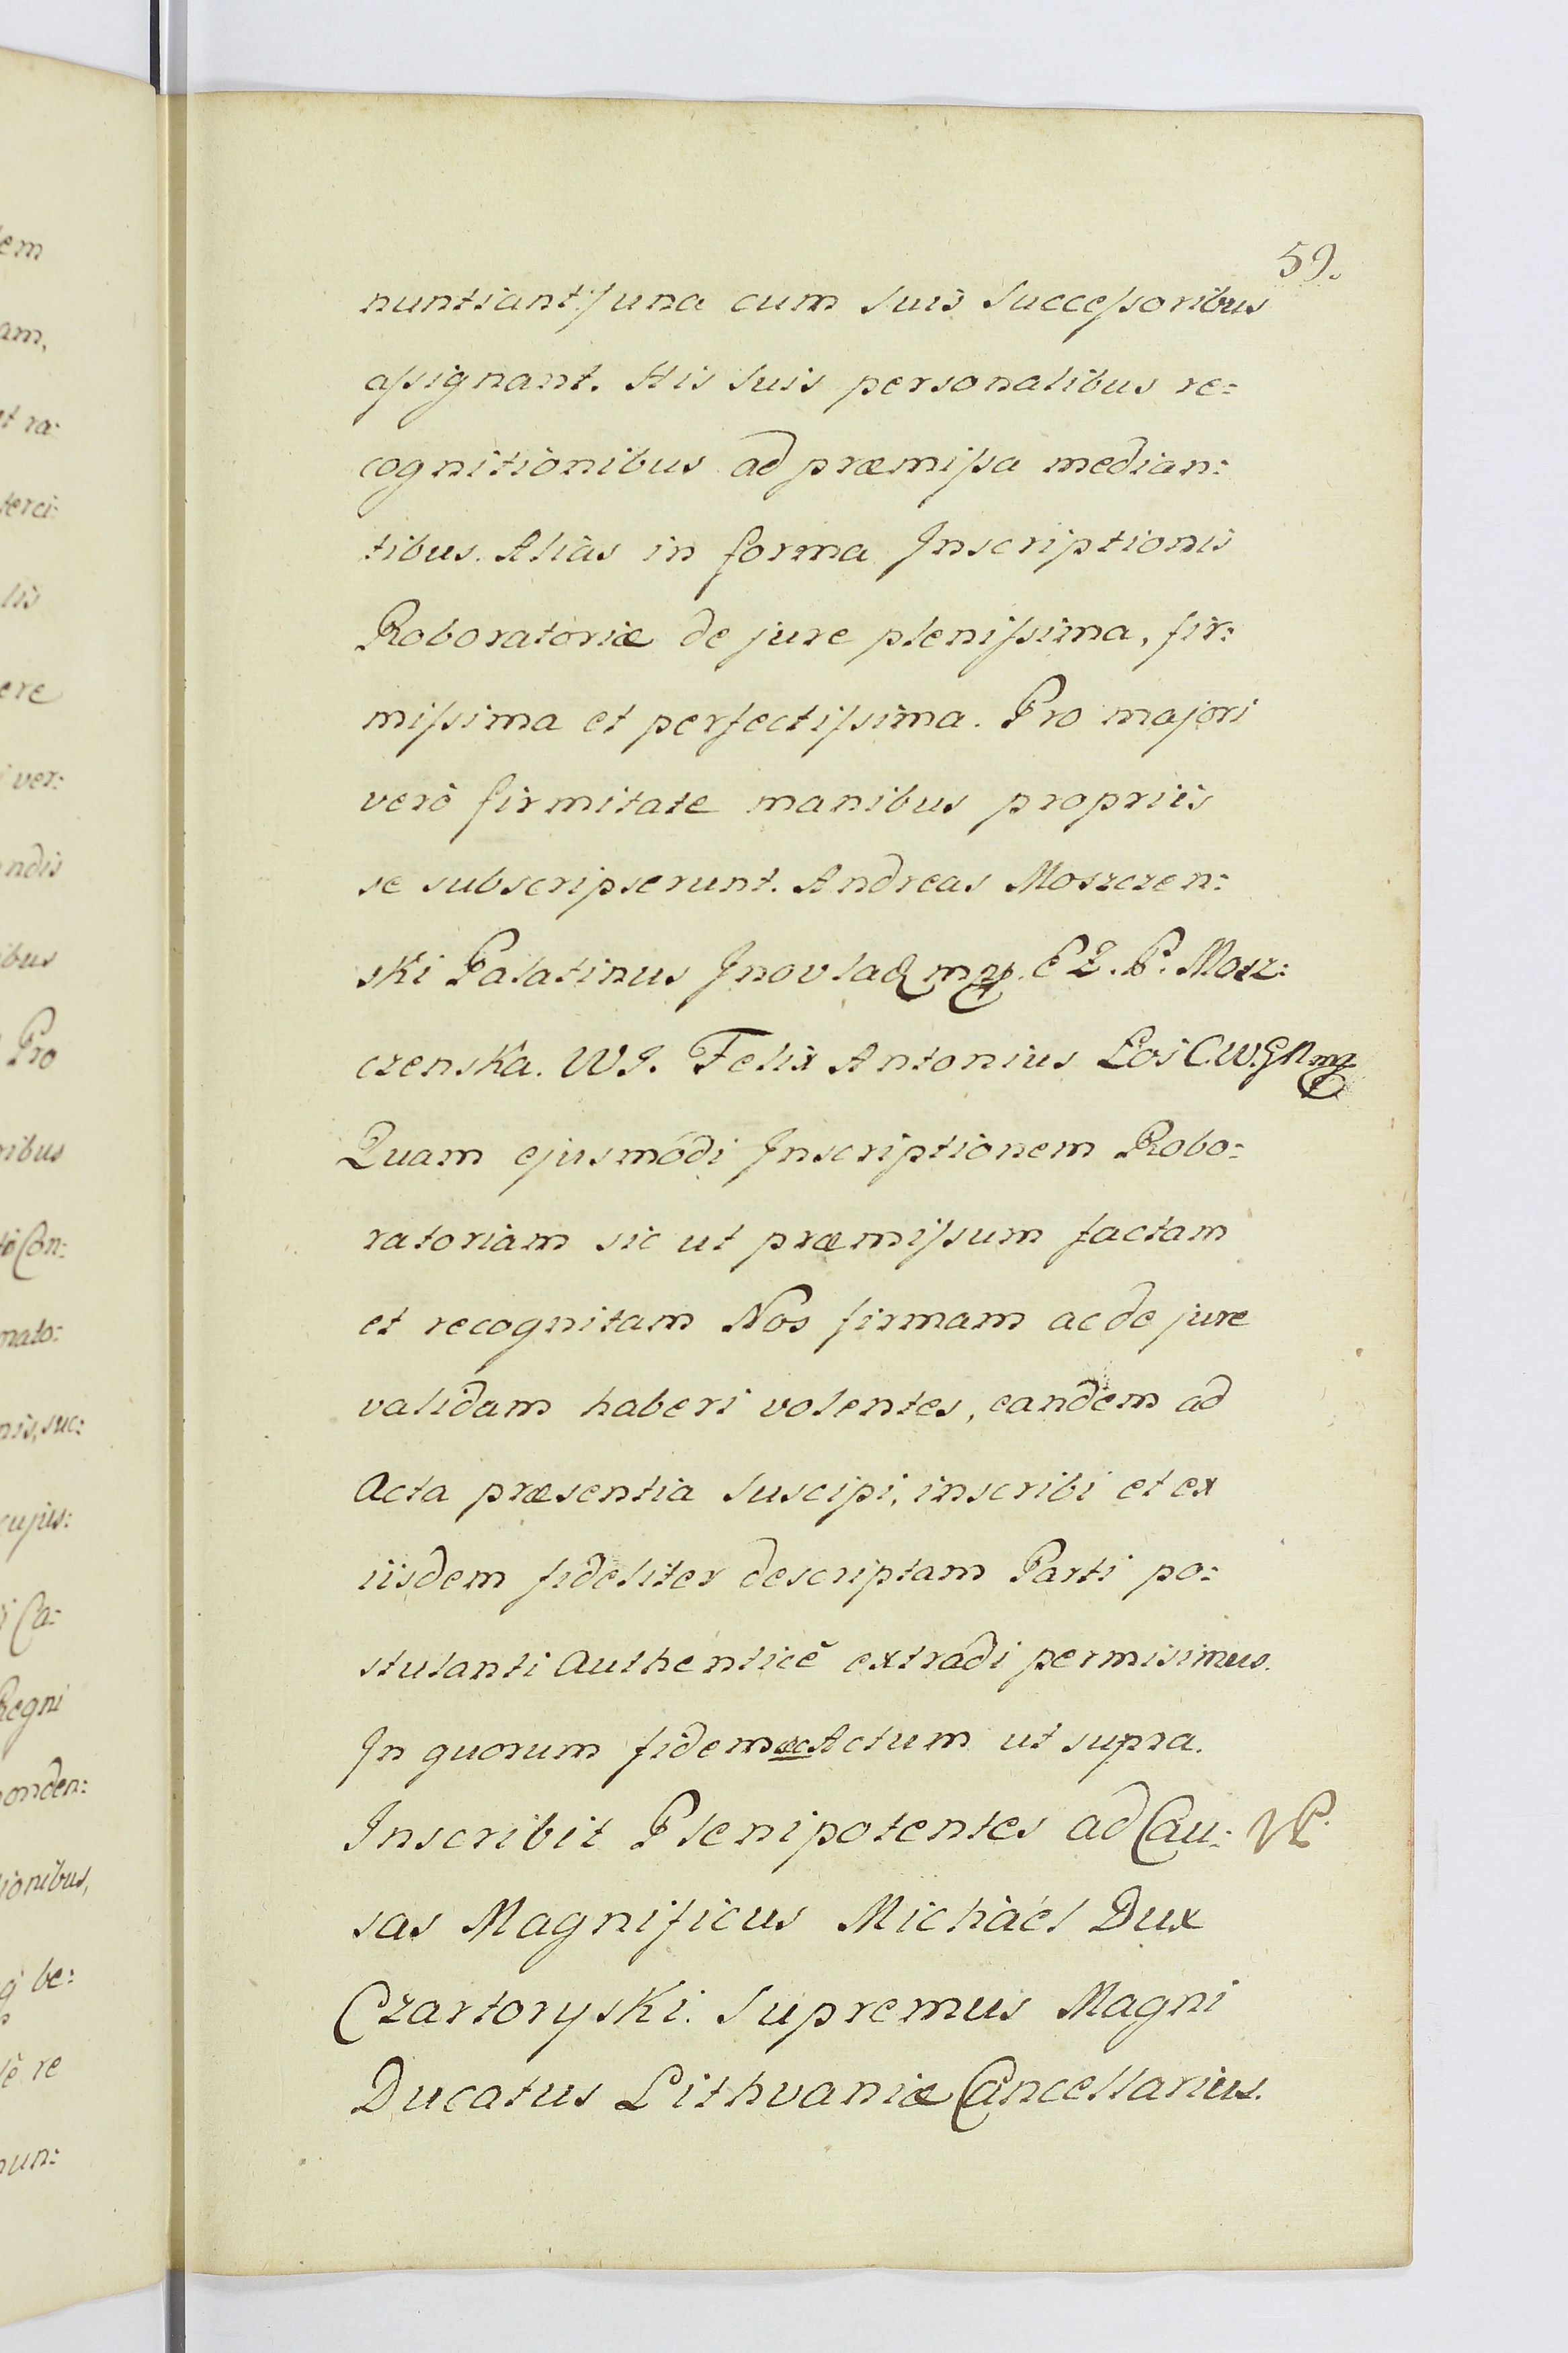 59.
nuntiant/ una cum suis Successoribus
assignant. His suis personalibus re:
cognitionibus ad præmissa median:
tibus. Aliàs in forma Inscriptionis
Roboratoriæ de jure plenissima, fir:
missima et perfectissima. Pro majori
verò firmitate manibus propriis
se subscripserunt. Andreas Moszczen:
ski Palatinus Inovlad mp. E Z. P. Mosz:
czenska. WJ. Felix Antonius Łoś C.W.G.N mp
Quam ejusmódi Inscriptionem Robo:
ratoriam sic ut præmissum factam
et recognitam Nos firmam ac de jure
validam haberi volentes, eandem ad
Acta præsentia suscipi, inscribi et ex
iisdem fideliter descriptam Parti po:
stulanti Authenticè extradi permisimus.
In quorum fidem &c Actum ut supra.
Inscribit Plenipotentes ad Cau: NP.
sas Magnificus Michaél Dux
Czartoryski. Supremus Magni
Ducatus Lithvaniæ Cancellarius.
em
am,
et ra:
terci:
lis
ere
ver:
ndis
ibus
Pro
nibus
Con:
mato:
nis, suc:
cujus:
Ca:
Regni
onden:
ionibus,
be:
re
nun: